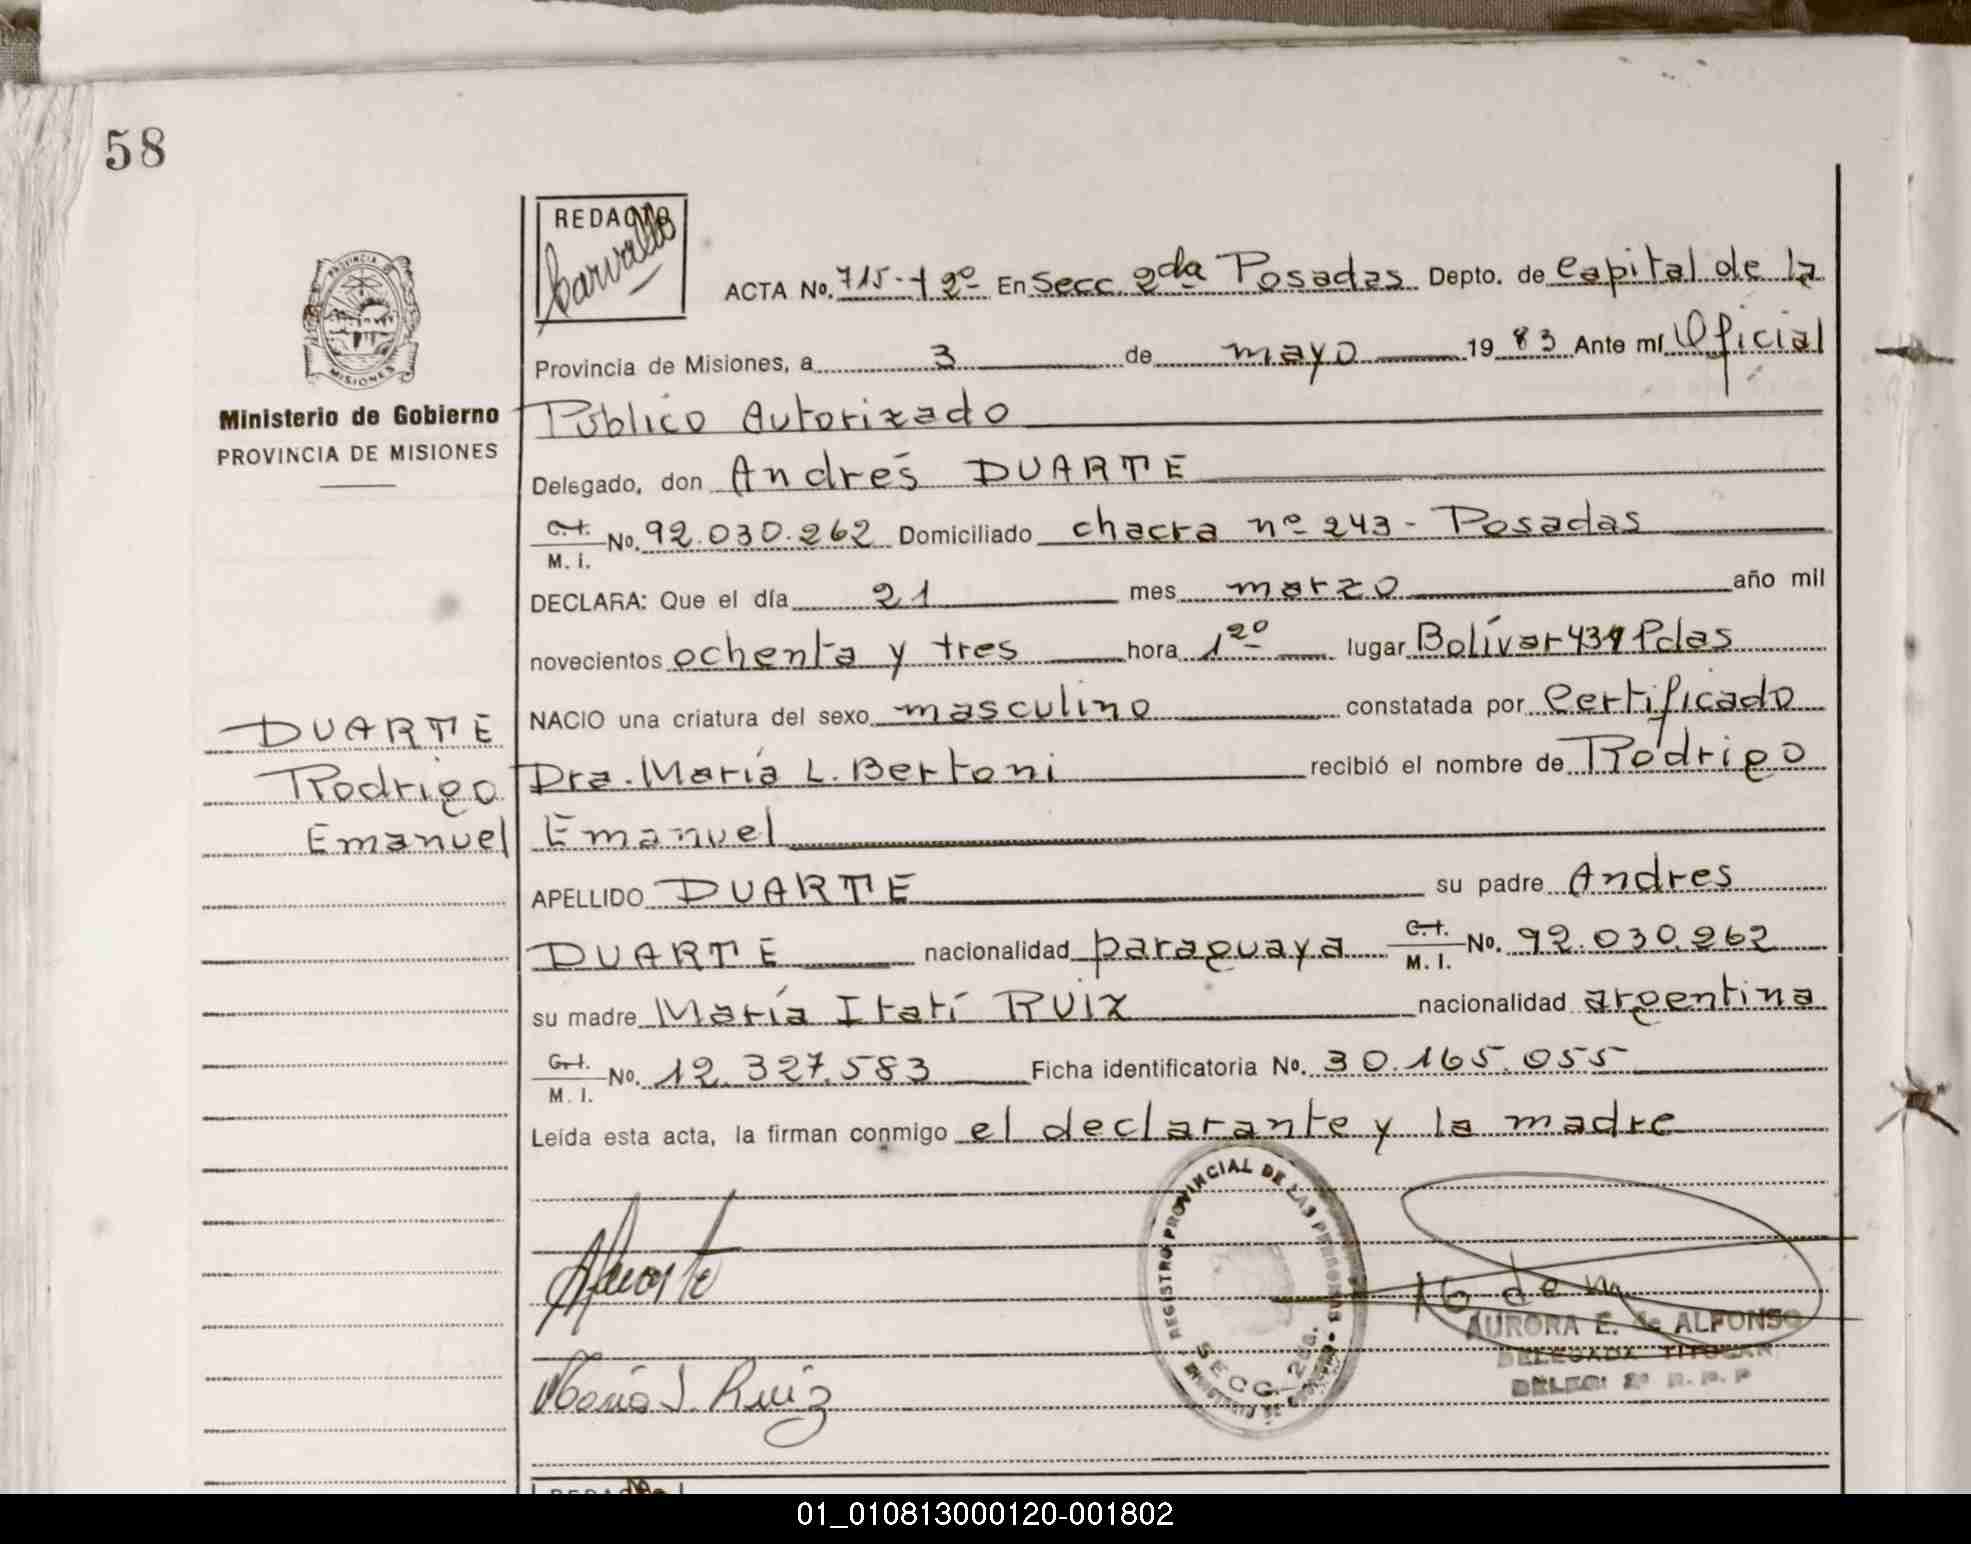 58
REDACTO
Carvallo
PROVINCIA DE
MISIONES
Ministerio de Gobierno
PROVINCIA DE MISIONES
ACTA No. 715-t 2º En Secc 2da Posadas Depto. de Capital de la
Provincia de Misiones, a 3 de mayo 19 83 Ante mí Oficial
Público Autorizado
Delegado, don Andrés DUARTE
C. I. M. I. No. 92.030.262 Domiciliado chacra nº 243 - Posadas
DECLARA: Que el día 21 mes marzo año mil
novecientos ochenta y tres hora 1²⁰ lugar Bolívar Pdas
NACIO una criatura del sexo masculino constatada por Certificado
Dra. María L. Bertoni recibió el nombre de Rodrigo
Emanuel
DUARTE
Rodrigo
Emanuel
APELLIDO DUARTE su padre Andres
DUARTE nacionalidad paraguaya C. I. M. I. No. 92.030.262
su madre María Itatí RUIZ nacionalidad argentina
C. I. M. I. No. 12.327.583 Ficha identificatoria No. 30.165.055
Leída esta acta, la firman conmigo el declarante y la madre
REGISTRO PROVINCIAL DE LAS PERSONAS
SECC. 2da.
ADuarte
16 de
AURORA E. de ALFONSO
DELEGADA TITULAR
DELEG. 2º R. P. P
María I. Ruiz
REDACTO
01_010813000120-001802